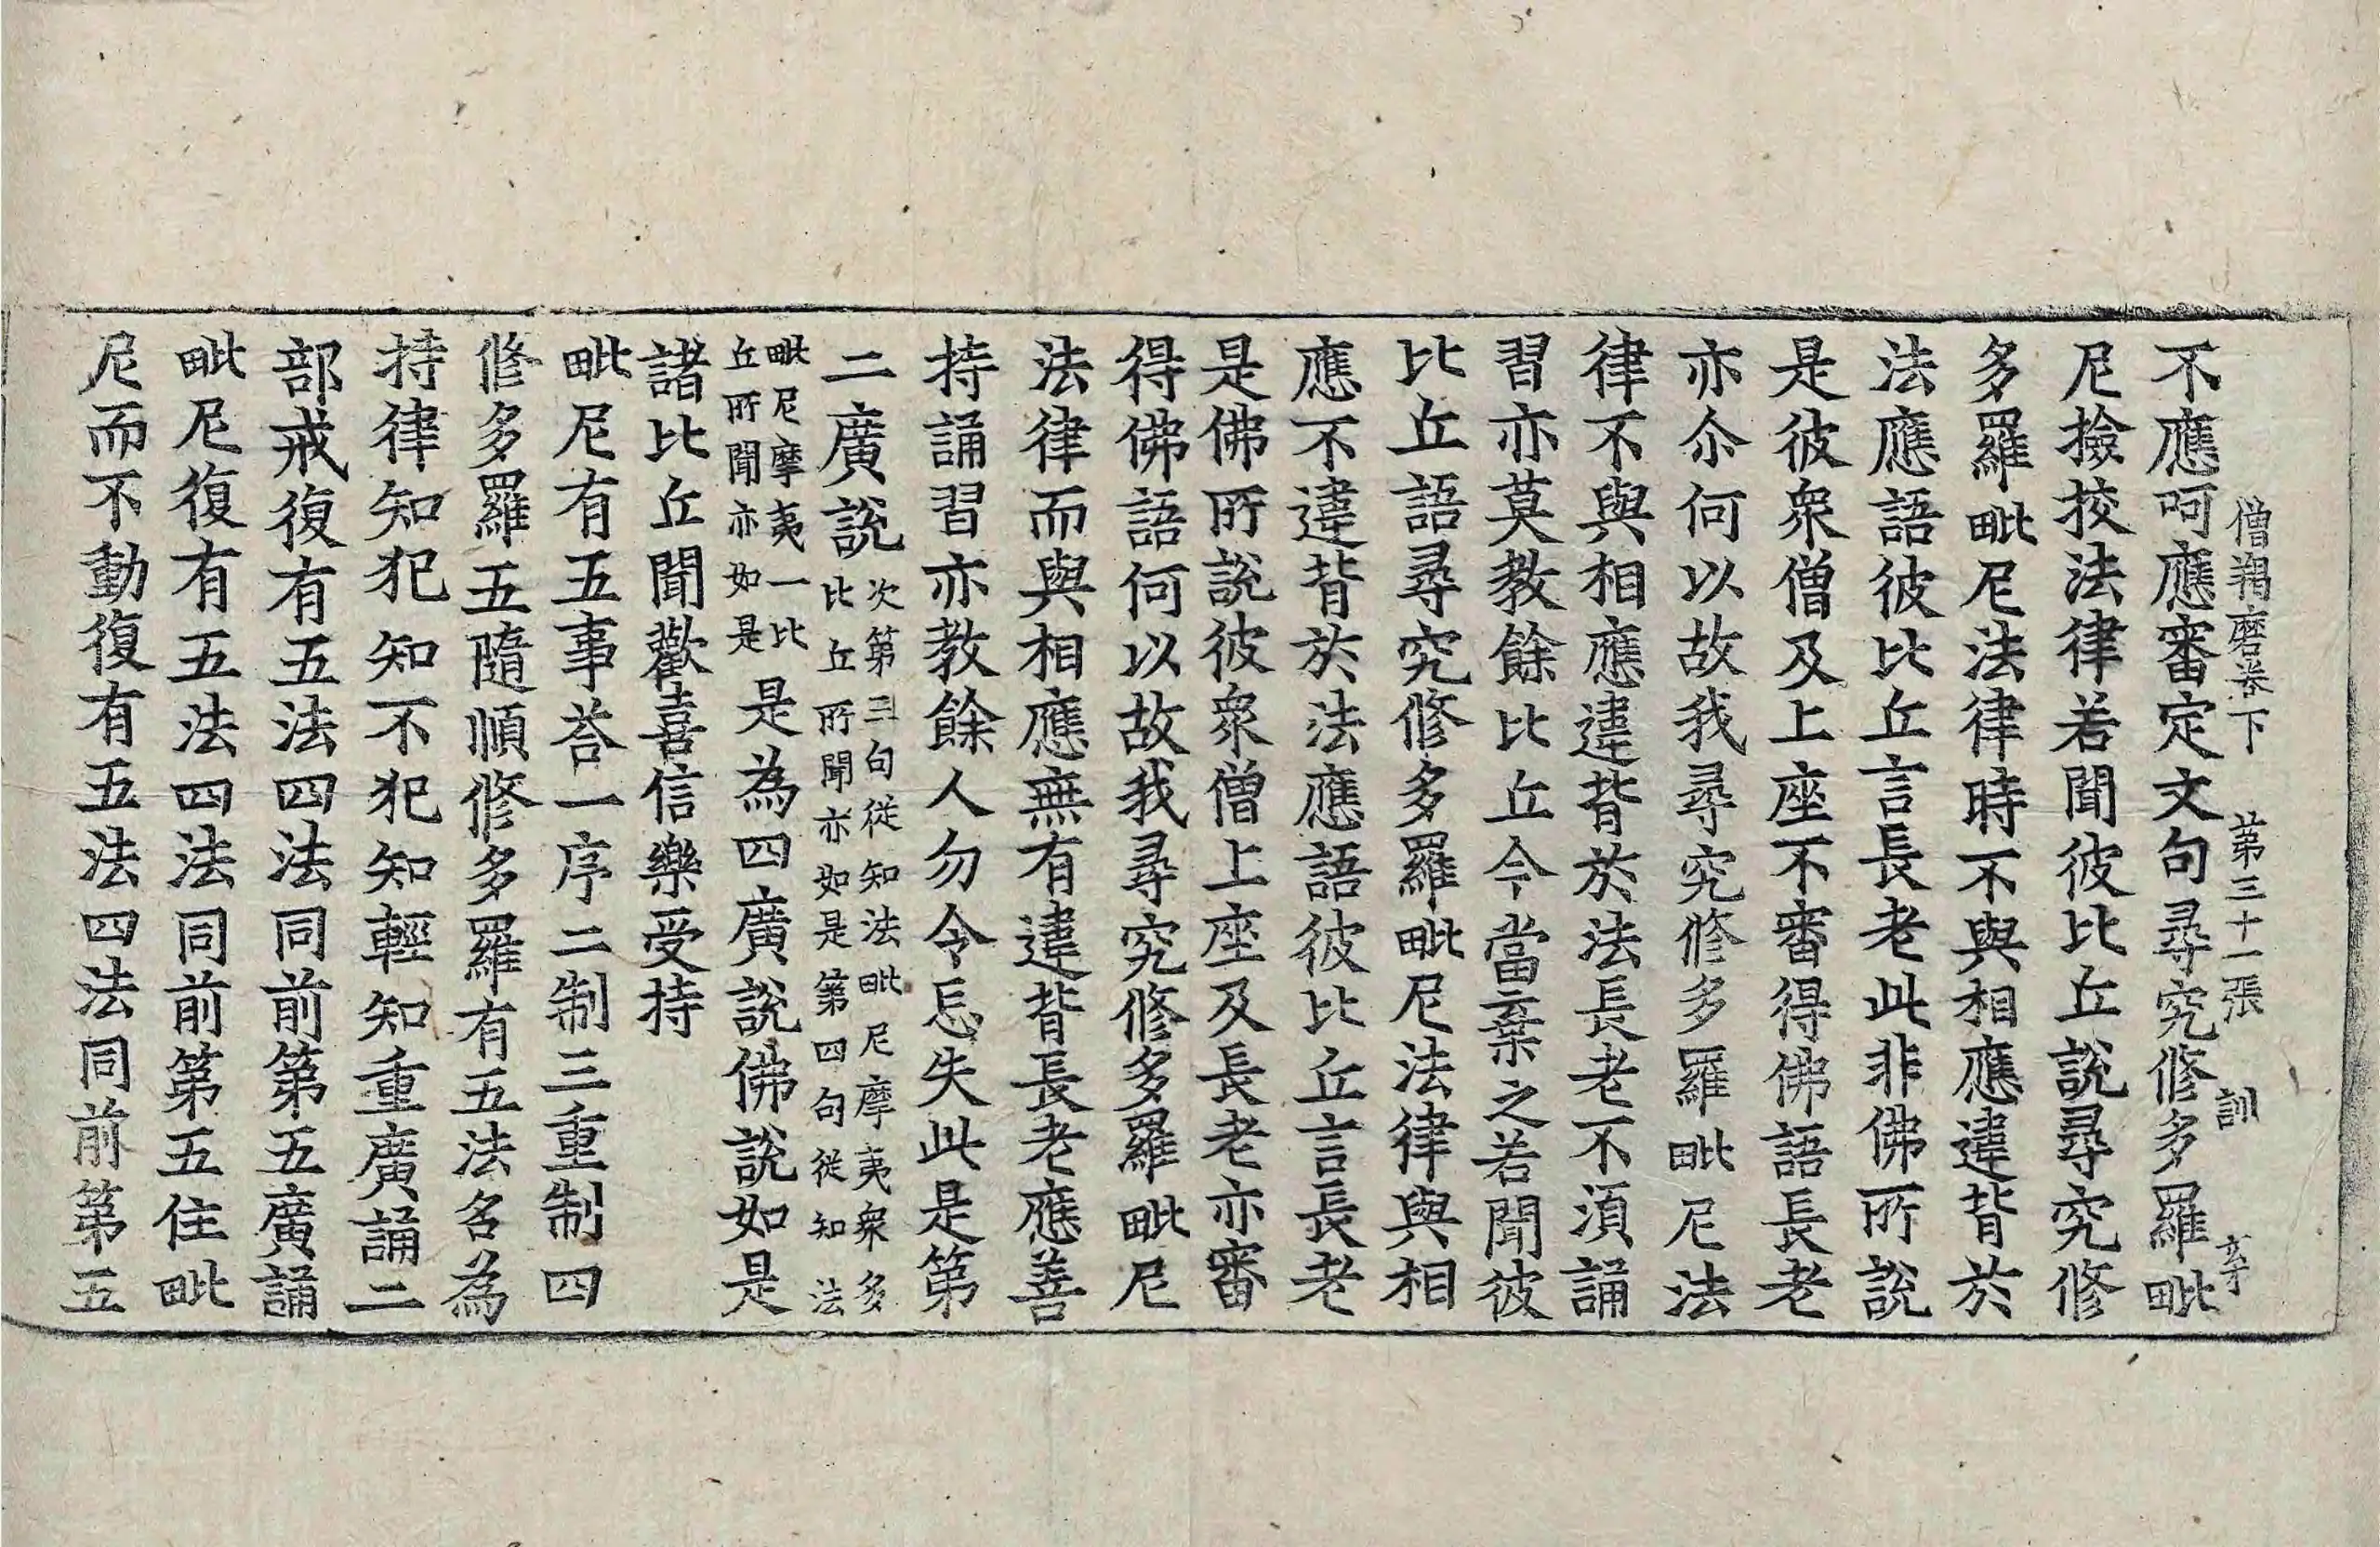 僧羯磨卷下　第三十一張　訓　亨
不應呵應審定文句尋究修多羅毗
尼撿挍法律若聞彼比丘說尋究修
多羅毗尼法律時不與相應違背於
法應語彼比丘言長老此非佛所說
是彼衆僧及上座不審得佛語長老
亦尒何以故我尋究修多羅毗尼法
律不與相應違背於法長老不湏誦
習亦莫教餘比丘今當棄之若聞彼
比丘語尋究修多羅毗尼法律與相
應不違背於法應語彼比丘言長老
是佛所說彼衆僧上座及長老亦審
得佛語何以故我尋究修多羅毗尼
法律而與相應無有違背長老應善
持誦習亦教餘人勿令忘失此是第
二廣說次第三句從知法毗尼摩夷衆多
比丘所聞亦如是第四句從知法
毗尼摩夷一比
丘所聞亦如是是為四廣說佛說如是
諸比丘聞歡喜信樂受持
毗尼有五事荅一序二制三重制四
修多羅五隨順修多羅有五法名為
持律知犯知不犯知輕知重廣誦二
部戒復有五法四法同前第五廣誦
毗尼復有五法四法同前第五住毗
尼而不動復有五法四法同前第五